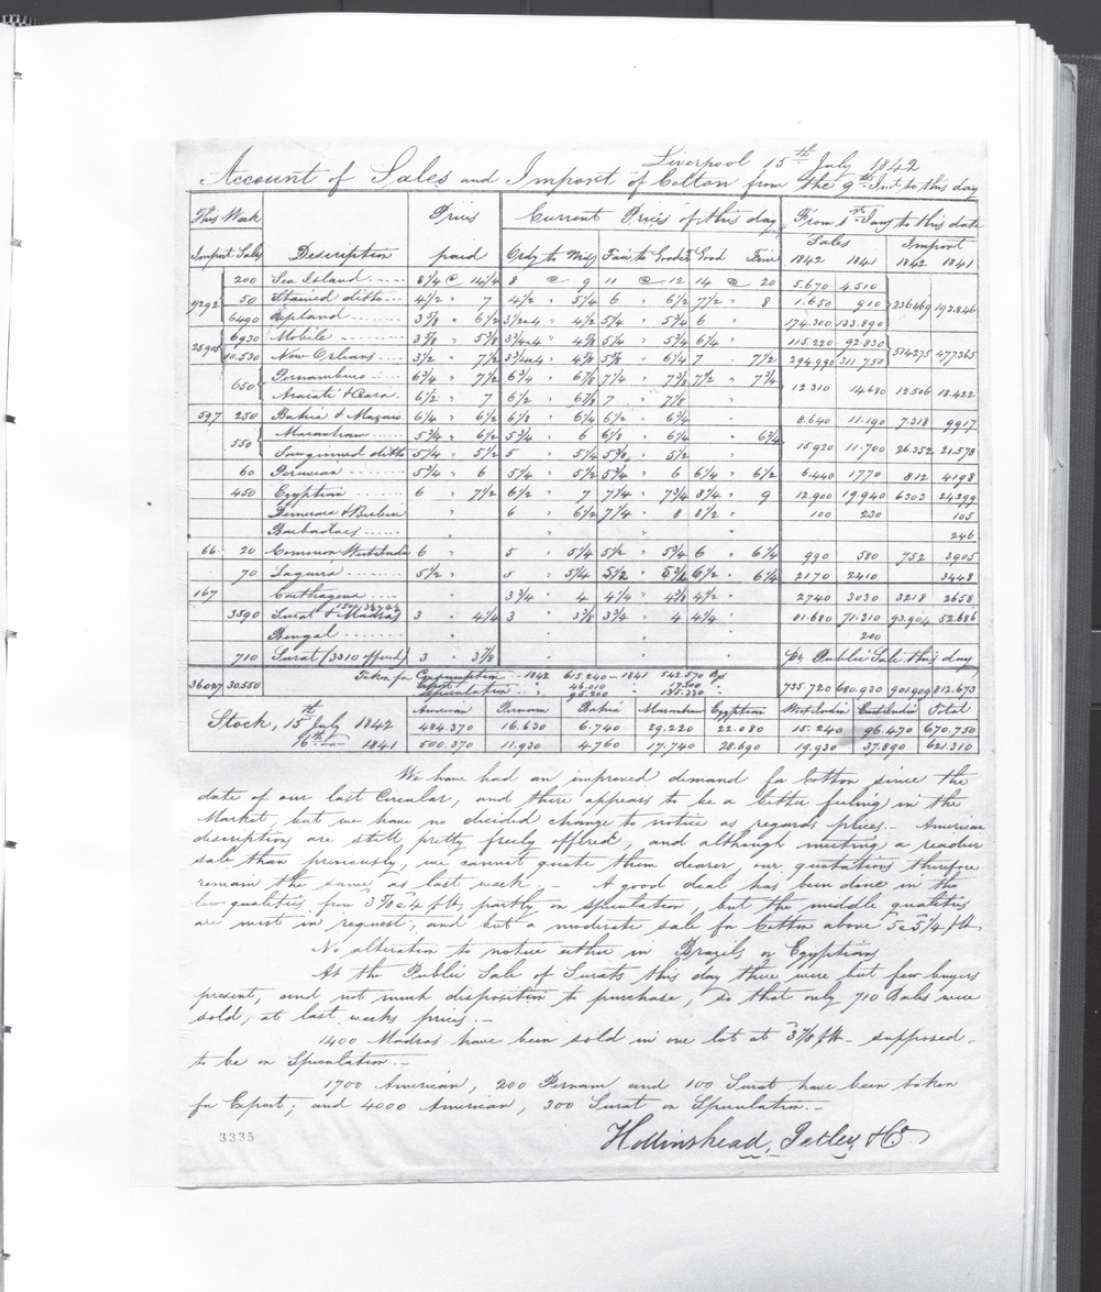 Liverpool 15th July 1842
Account of Sales and Import of Cotton from the 9th Inst to this day
This Week Description Prices paid Current Prices of this day From 1st Jany to this date
Import Sales Ordy to Midg Fair to Good Good Fair Sales 1842 1841 Import 1842 1841
200 Sea Island 8 1/4 @ 14 1/4 8 @ 9 11 @ 12 14 @ 20 5.670 4.510
9292 50 Stained ditto 4 1/2 " 7 4 1/2 " 5 1/4 6 " 6 1/2 7 1/2 " 8 1.650 910 236469 193.846
6490 Upland 3 5/8 " 6 1/2 3 1/2 a 4 " 4 1/2 5 1/4 " 5 3/4 6 " 174.300 133.890
6930 Mobile 5 3/4 6 1/4 " 115.220 92.830
25905 10.530 New Orleans 3 1/2 " 7 1/2 6 1/4 7 " 7 1/2 294.990 311.750 514275 477365
650 Pernambuco 6 3/4 " 7 1/2 6 3/4 " 6 7/8 7 1/4 " 7 3/8 7 1/2 " 7 3/4 12.310 14680 12.506 18.422
Aracati & Ceara 6 1/2 " 7 6 1/2 " 6 7/8 7 " 7 1/8 "
597 250 Bahia & Maceio 6 1/4 " 6 1/2 6 1/8 " 6 1/4 6 1/2 " 6 3/4 " 8.640 11.190 7.318 9917
550 Maranham 5 3/4 " 6 1/2 5 3/4 " 6 6 1/8 " 6 1/4 " 6 3/4 15.920 11.700 26.352 21.578
Sawginned ditto 5 1/4 " 5 1/2 5 " 5 1/4 5 3/8 " 5 1/2 "
60 Peruvian 5 3/4 " 6 5 1/4 " 5 1/2 5 3/4 " 6 6 1/4 " 6 1/2 6.440 1770 812 4198
450 Egyptian 6 " 7 1/2 6 1/2 " 7 7 1/4 " 7 3/4 8 1/4 " 9 12.900 19.940 6303 24299
Demerara & Berbice " 6 " 6 1/2 7 1/4 " 8 8 1/2 " 100 230 105
Barbadoes " " " " 246
66 20 Common West India 6 " 5 " 5 1/4 5 1/2 " 5 3/4 6 " 6 1/4 990 580 752 3905
70 Laguira 5 1/2 " 5 " 5 1/4 5 1/2 " 5 3/4 6 1/2 " 6 3/4 2170 2410 3448
167 Carthagena " 3 3/4 " 4 4 1/4 " 4 3/8 4 1/2 " 2740 3030 3218 2658
3590 Surat & Madras 3 " 4 1/4 3 " 3 3/8 3 3/4 " 4 4 1/4 " 81.680 71.210 93.904 52.686
Bengal " " " " 200
710 Surat (3310 offered) 3 " 3 7/8 " " " By Public Sale this day
36027 30.550 Taken for Consumption 1842 615.240 1841 542.570 Bgs 735.720 680.930 901.909 812.673
Export " 46.010 " "
Speculation " "
American Pernam Bahia Maranham Egyptian West India East India Total
Stock, 15th July 1842 484.370 16.630 6.740 29.220 22.080 15.240 96.470 670.750
16th 1841 500.370 11.930 4.760 17.740 28.690 19.930 37.890 621.310
We have had an improved demand for Cotton since the
date of our last Circular, and there appears to be a better feeling in the
Market, but we have no decided change to notice as regards prices. American
descriptions are still pretty freely offered, and although meeting a readier
sale than previously, we cannot quote them dearer, our quotations therefore
remain the same as last week - A good deal has been done in the
low qualities from partly on speculation, but the middle qualities
are most in request, and but a moderate sale for Cotton above 5 a 5 1/4 p lb.
No alteration to notice either in Brazils or Egyptians
At the Public Sale of Surats this day there were but few buyers
present, and not much disposition to purchase, so that only 710 Bales were
sold, at last weeks prices.-
1400 Madras have been sold in one lot at 3 7/8 p lb - supposed
to be on Speculation.-
1700 American, 200 Pernam and 100 Surat have been taken
for Export; and 4000 American, 300 Surat on Speculation.-
Hollinshead, Tetley & Co
3335